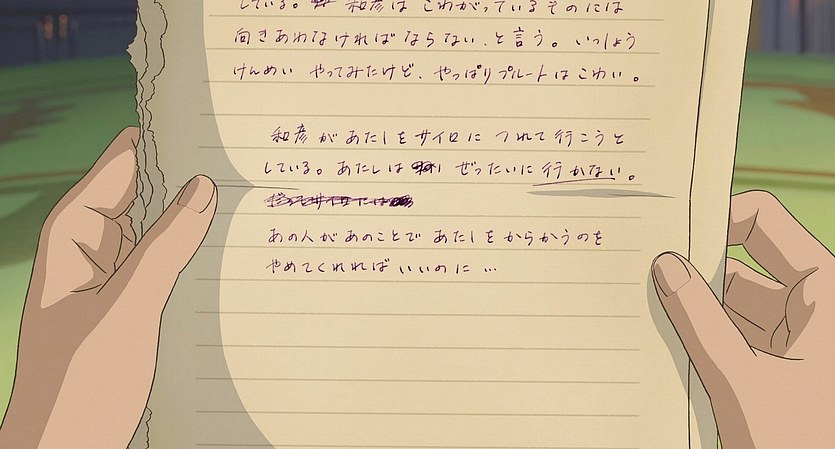 している。和彦は こわがっているものには
向きあわなければ ならない、と言う。いっしょう
けんめい やってみたけど、やっぱりプルートは こわい。
和彦が あたしを サイロに つれて 行こうと
している。あたしは ぜったいに 行かない。
あの人が あのことで あたしを からかうのを
やめてくれれば いいのに …